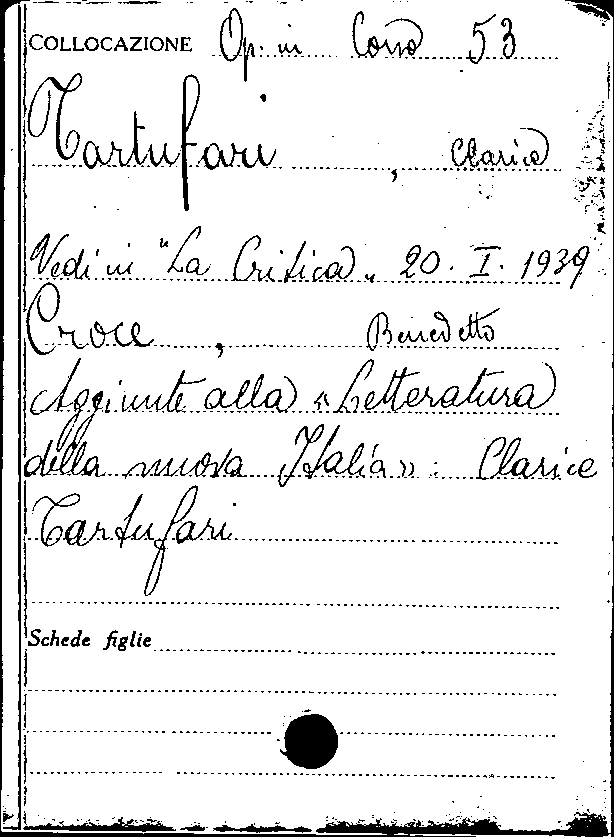 COLLOCAZIONE Op. in Corso 53
Tartufari, Clarice
Vedi in "La Critica„ 20. I. 1939
Croce, Benedetto
Aggiunte alla «Letteratura
della nuova Italia»: Clarice
Tartufari
Schede figlie